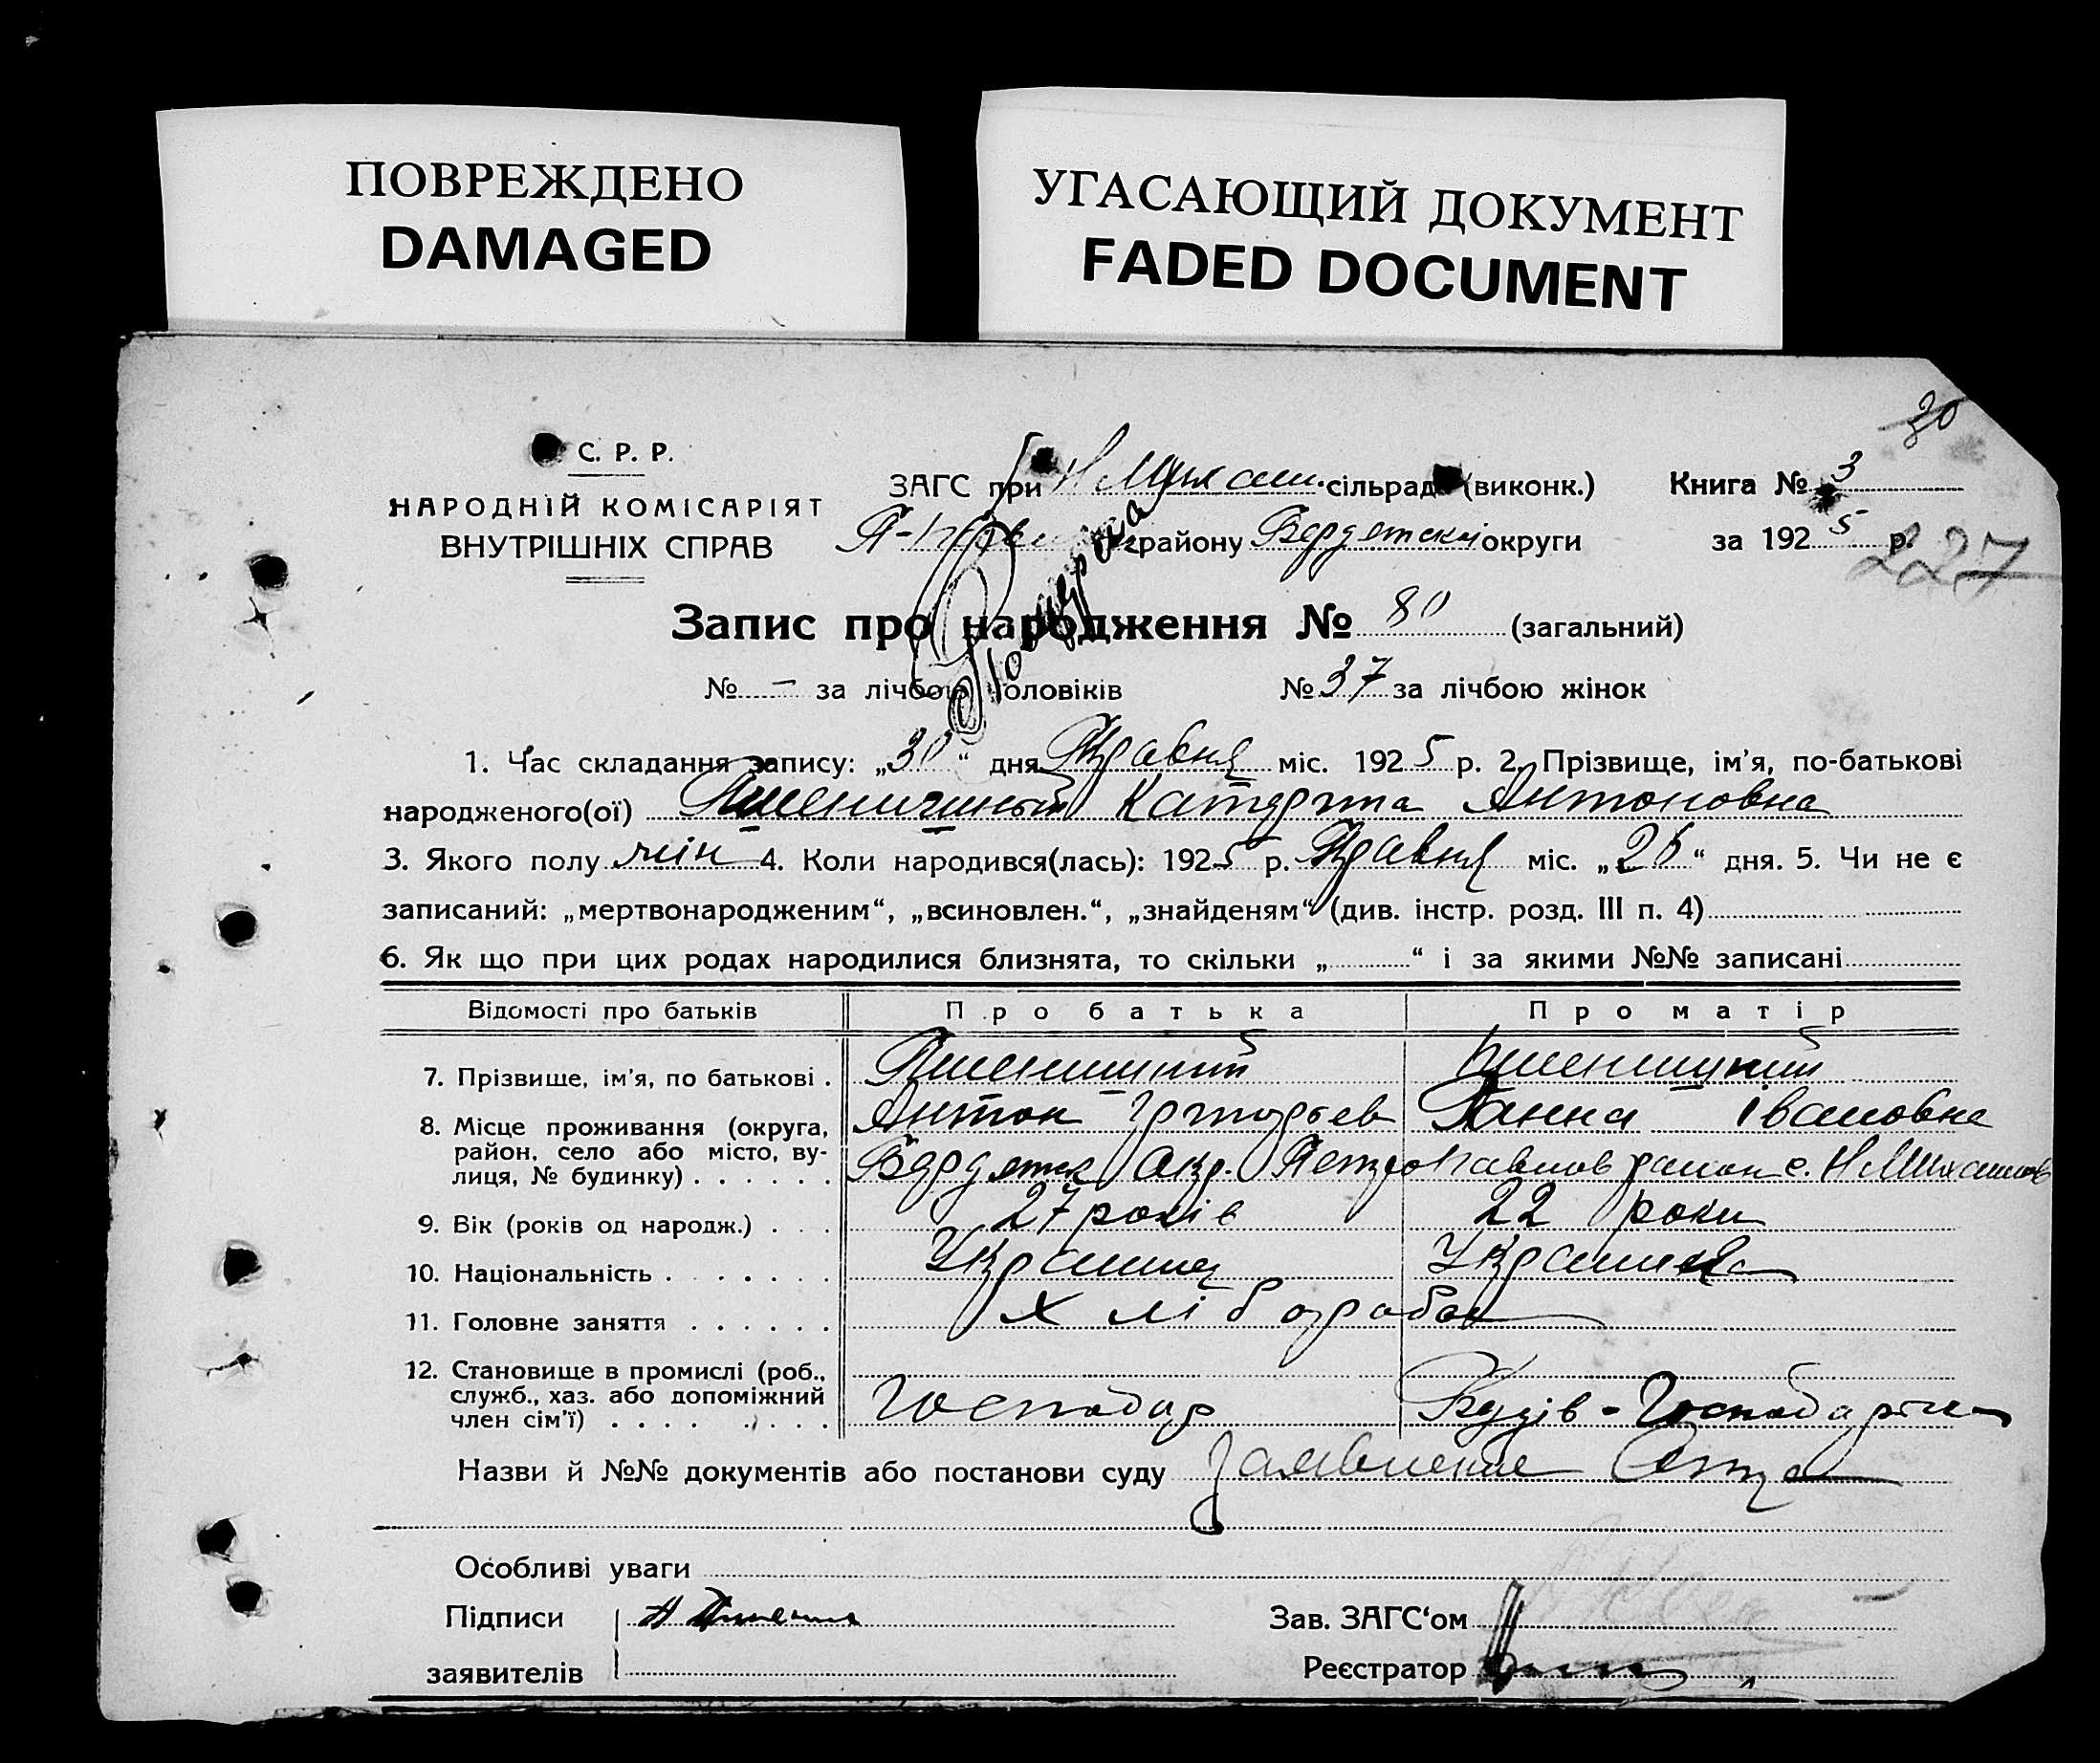 ПОВРЕЖДЕНО
DAMAGED
УГАСАЮЩИЙ ДОКУМЕНТ
FADED DOCUMENT
30
С. Р. Р.
НАРОДНІЙ КОМІСАРІЯТ
ВНУТРІШНІХ СПРАВ
ЗАГС при Н Михайл. сільрад (виконк.)
району Бердянської округи
Книга № 3
за 1925 р.
227
Запис про народження № 80 (загальний)
№ - за лічбою чоловіків № 37 за лічбою жінок
1. Час складання запису: „30“ дня Травня міс. 1925 р. 2. Прізвище, ім'я, по-батькові
народженого(ої) Катерина Антоновна
3. Якого полу жін 4. Коли народився(лась): 1925 р. Травня міс. „26“ дня. 5. Чи не є
записаний: „мертвонародженим“, „всиновлен.“, „знайденям“ (див. інстр. розд. III п. 4)
6. Як що при цих родах народилися близнята, то скільки „ “ і за якими №№ записані
Відомості про батьків Про батька Про матір
7. Прізвище, ім'я, по батькові . Пшеницкий Пшеницкий
Антон Григорьев Ганна Івановна
8. Місце проживання (округа, район, село або місто, вулиця, № будинку) . . . . . . Бердянск Окр. Петропавлов район с. Н Михайлов
9. Вік (років од народж.) . . . 27 років 22 роки
10. Національність . . . . . . . Українец Українка
11. Головне заняття . . . . . . Хлібороб
12. Становище в промислі (роб., служб., хаз. або допоміжний член сім'ї) . . . . . . . . Господар Господарка
Назви й №№ документів або постанови суду Заявление Отца
Особливі уваги
Підписи
заявителів
Зав. ЗАГС'ом
Реєстратор